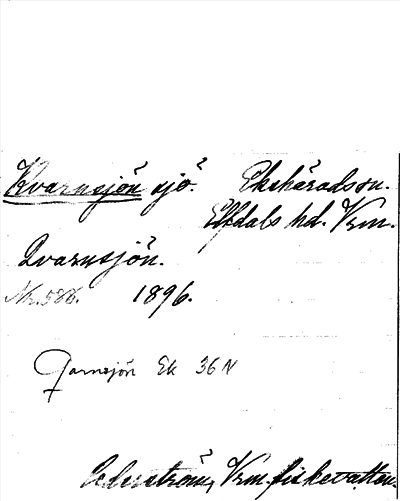 Kvarnsjön sjö. Ekshäradssn.
Elfdals hd. Vrm.
Qvarnsjön.
Nr. 586. 1896.
Qarnsjön Ek 36 N
Cederström, Vrm. fiskevatten.